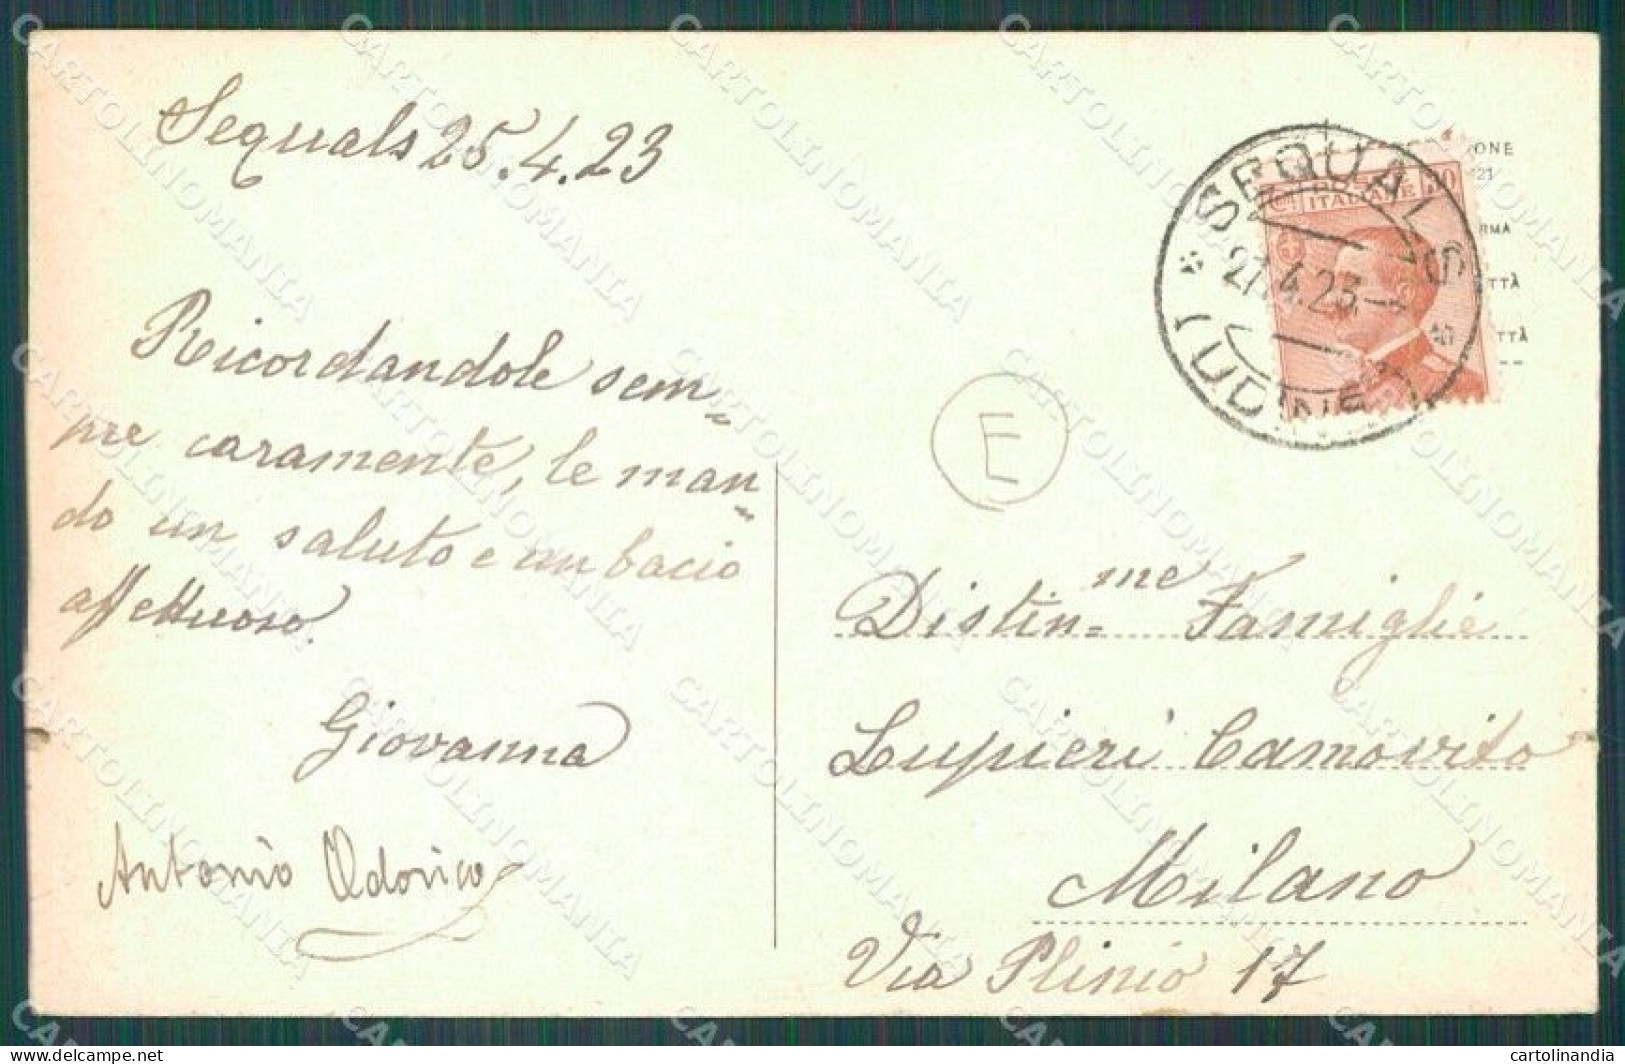 Sequals 25.4.23
Ricordandole sem=
pre caramente, le man=
do un saluto e un bacio
affettuoso.
Giovanna
Antonio Odorico
SEQUALS
27.4.23
UDINE
ITALIANE
ONE
21
RMA
TTÀ
TTÀ
E
Distin=me Famiglie
Lupieri Camovito
Milano
Via Plinio 17
CARTOLINOMANIA
delcampe.net
cartolinandia